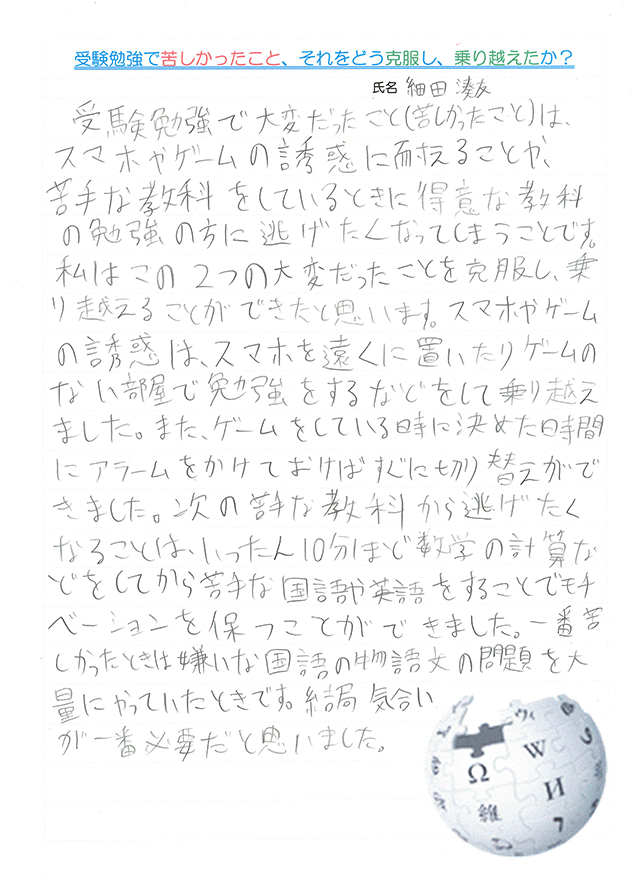 受験勉強で苦しかったこと、それをどう克服し、乗り越えたか？
氏名 細田 湊友
受験勉強で大変だったこと(苦しかったこと)は、
スマホやゲームの誘惑に耐えることや、
苦手な教科をしているときに得意な教科
の勉強の方に逃げたくなってしまうことです。
私はこの2つの大変だったことを克服し、乗
り越えることができたと思います。スマホやゲーム
の誘惑は、スマホを遠くに置いたりゲームの
ない部屋で勉強をするなどをして乗り越え
ました。また、ゲームをしている時に決めた時間
にアラームをかけておけばすぐに切り替えがで
きました。次の苦手な教科から逃げたく
なることは、いったん10分ほど数学の計算な
どをしてから苦手な国語や英語をすることでモチ
ベーションを保つことができました。一番苦
しかったときは嫌いな国語の物語文の問題を大
量にやっていたときです。結局気合い
が一番必要だと思いました。
ウィ
W
Ω
И
維